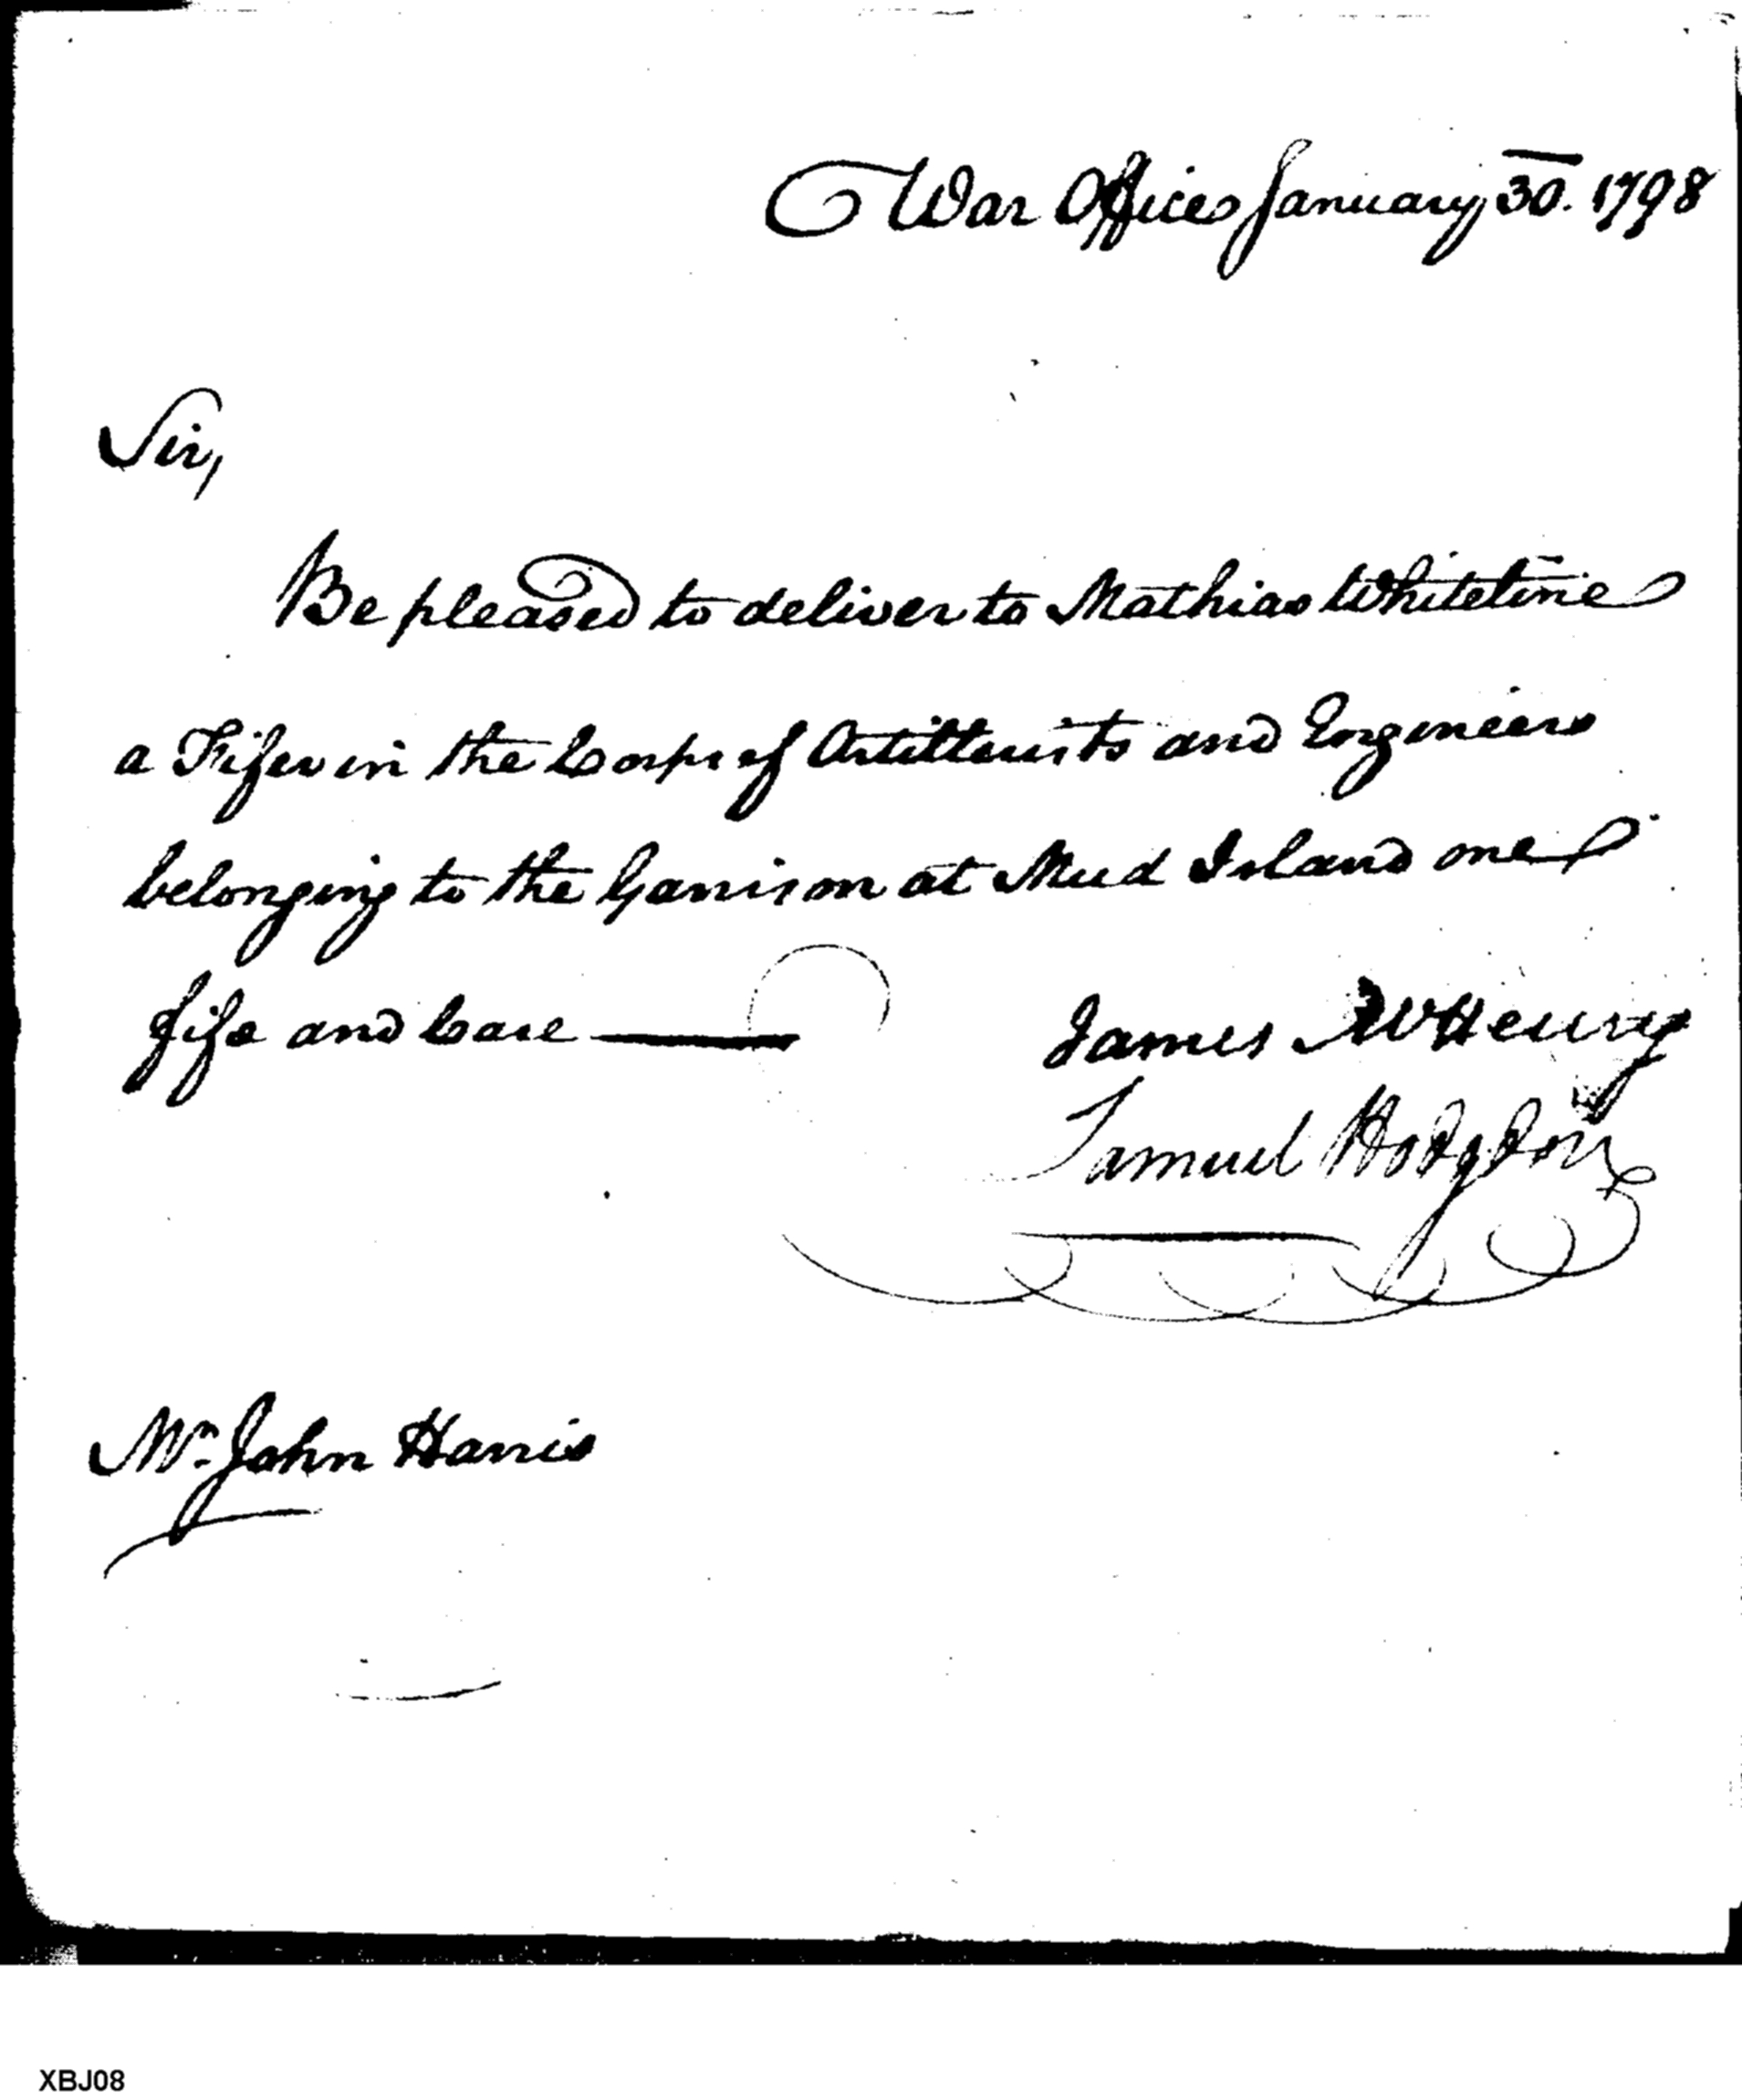 War Office January 30. 1798
Sir,
Be pleased to deliver to Mathias Whitetine
a Fifer in the Corps of Artillerists and Engineers
belonging to the Garrison at Mud Island one
fife and Case
James McHenry
Samuel Hodgdon
Mr. John Harris
XBJ08